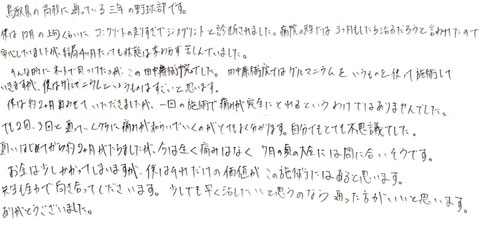 鳥取県の高校に通っている三年の野球部です。
僕は12月の上旬くらいにコンクリートの走りすぎでシンスプリントと診断されました。病院の話では3ヶ月もしたら治るだろうと言われたので
安心していましたが、結局4ヶ月たっても状態は変わらず苦しんでいました。
そんな時にネットで見つけたのが、この田中療術院でした。田中療術院ではゲルマニウムというものを使って施術して
いきますが、僕はゲルマニウムというものはすごいと思います。
僕は約2ヶ月通わせていただきましたが、一回の施術で痛みが完全にとれるというわけではありませんでした。
でも2回、3回と通っていくうちに痛みが和らいでいくのがとてもよく分かります。自分でもとても不思議でした。
通いはじめてから約2ヶ月がたちましたが、今は全く痛みはなく7月の夏の大会には間に合いそうです。
お金は少しかかってしまいますが、僕はそれだけの価値がこの施術にはあると思います。
先生も全力で向き合ってくださいます。少しでも早く治したいと思うのなら通った方がいいと思います。
ありがとうございました。